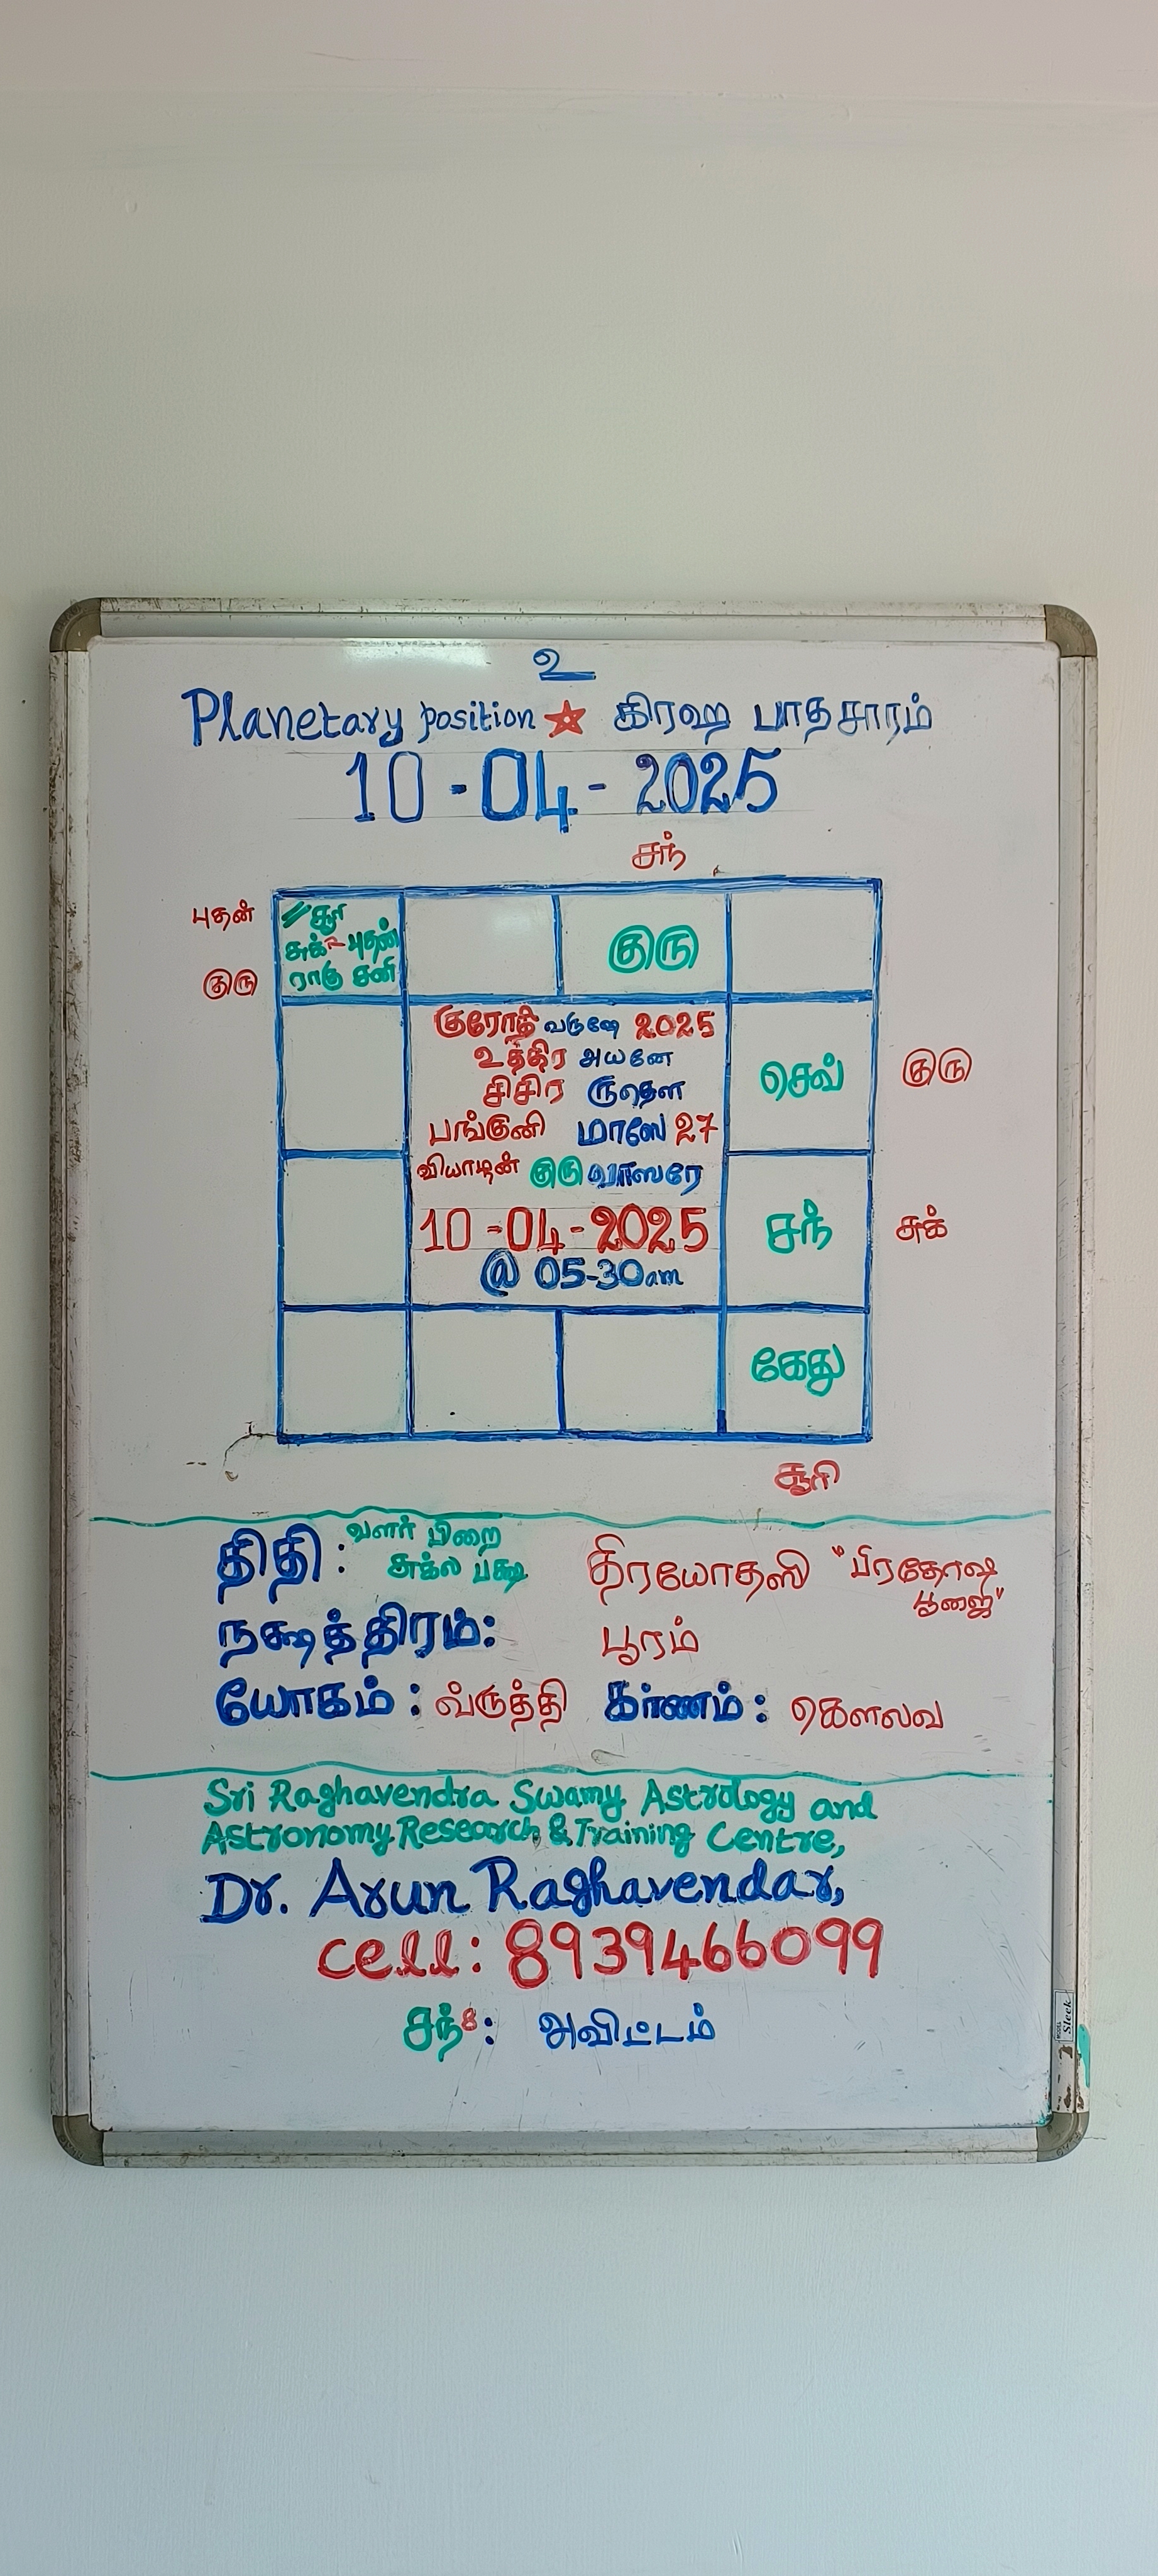 உ
Planetary position ★ கிரஹ பாதசாரம்
10-04-2025
சந்
புதன்
குரு
சூரி
சுக் புதன்
ராகு சனி
குரு
குரோதி வருஷே 2025
உத்திர அயனே
சிசிர ருதௌ
பங்குனி மாஸே 27
வியாழன் குரு வாஸரே
10-04-2025
@ 05-30am
செவ்
குரு
சந்
சுக்
கேது
சூரி
திதி: வளர் பிறை
சுக்ல பக்ஷ திரயோதஸி "பிரதோஷ
பூஜை"
நக்ஷத்திரம்: பூரம்
யோகம்: வ்ருத்தி கரணம்: கௌலவ
Sri Raghavendra Swamy Astrology and
Astronomy Research & Training Centre,
Dr. Arun Raghavendar,
cell: 8939466099
சந் 8: அவிட்டம்
Sleek